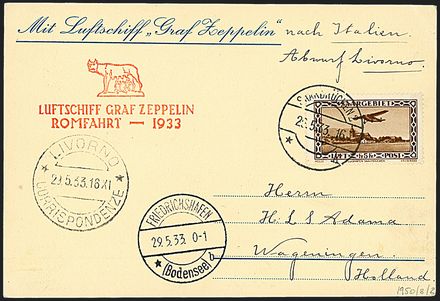 Mit Luftschiff „Graf Zeppelin“ nach Italien.
Abwurf Livorno
LUFTSCHIFF GRAF ZEPPELIN
ROMFAHRT — 1933
SAARBRÜCKEN
SAARGEBIET
LUFT POST
LIVORNO
29.5.33.16
CORRISPONDENZE
FRIEDRICHSHAFEN
29.5.33. 0-1
* (Bodensee) b
Herrn
H L S Adama
Wageningen
Holland
1950/8/2